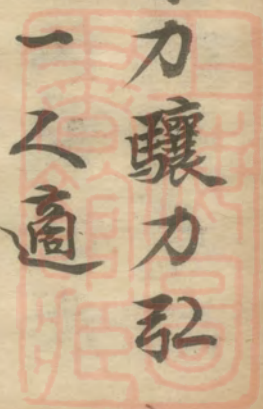 力驤力弘
一人適